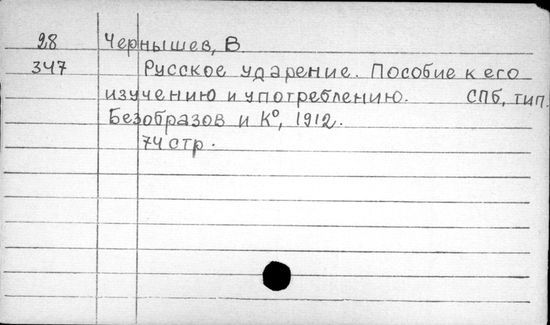 28 Чернышев, В
347 Русское ударение. Пособие к его
изучению и употреблению. СПб, тип.
Безобразов и К°, 1912.
74 стр.